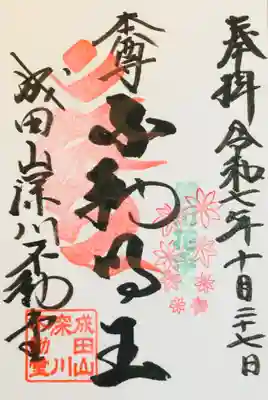 奉拝 令和七年十月二十七日
本尊
不動明王
成田山深川不動堂
成田山
深川
不動堂